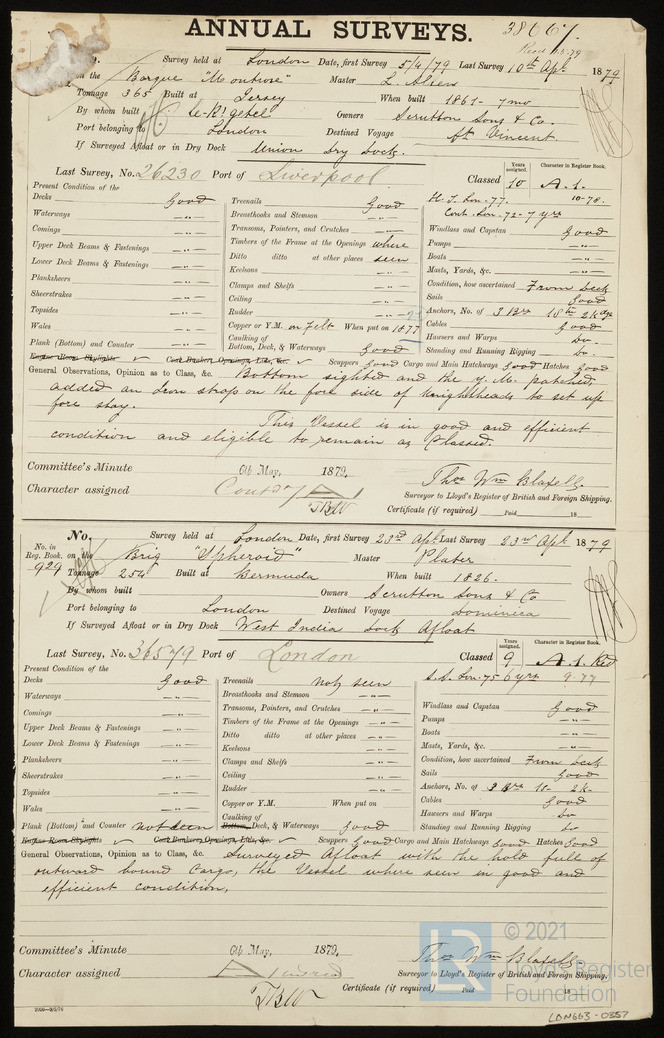 ANNUAL SURVEYS.
38667.
Survey held at London Date, first Survey 5/4/79 Last Survey 10th Apl 1879
on the Barque "Montrose" Master L. Olsen
Tonnage 365 Built at Jersey When built 1861- 7mo
By whom built Owners Scrutton Sons & Co.
Port belonging to London Destined Voyage St. Vincent.
If Surveyed Afloat or in Dry Dock Union Dry Dock.
Last Survey, No. 26230 Port of Liverpool Classed Years assigned. 10 Character in Register Book. A.1.
10-78.
H.T. Lon-77.
Cont. Lon-72-7 yrs
Present Condition of the
Decks Good
Waterways -"-
Comings -"-
Upper Deck Beams & Fastenings -"-
Lower Deck Beams & Fastenings -"-
Planksheers -"-
Sheerstrakes -"-
Topsides -"-
Wales -"-
Plank (Bottom) and Counter -"-
Treenails Good
Breasthooks and Stemson -"-
Transoms, Pointers, and Crutches -"-
Timbers of the Frame at the Openings where
Ditto ditto at other places seen
Keelsons -"-
Clamps and Shelfs -"-
Ceiling -"-
Rudder -"-
Copper or Y.M. on Felt When put on 10 77
Caulking of
Bottom, Deck, & Waterways Good
Windlass and Capstan Good
Pumps -"-
Boats -"-
Masts, Yards, &c. -"-
Condition, how ascertained From Deck
Sails Good
Anchors, No. of 3 Brs 1 Sth 2 Kdgs
Cables Good
Hawsers and Warps Do.
Standing and Running Rigging Do.
Engine Room Skylights Coal Bunkers, Openings, Lids, &c. Scuppers Good Cargo and Main Hatchways Good Hatches Good
General Observations, Opinion as to Class, &c. Bottom sighted and the Y.M. patched
added an Iron strap on the fore side of Knightheads to set up
fore stay.
This Vessel is in good and efficient
condition and eligible to remain as Classed.
Committee's Minute 6th May, 1879.
Character assigned Contd 7 A 1
TBW
Thos Wm Blafell
Surveyor to Lloyd's Register of British and Foreign Shipping.
Certificate (if required) Paid 18
No. Survey held at London Date, first Survey 23rd Apl Last Survey 23rd Apl 1879
No. in Reg. Book. 929 on the Brig "Spheroid" Master Plater
Tonnage 254 Built at Bermuda When built 1826.
By whom built Owners Scrutton Sons & Co
Port belonging to London Destined Voyage Dominica
If Surveyed Afloat or in Dry Dock West India Dock Afloat
Last Survey, No. 36579 Port of London Classed Years assigned. 9 Character in Register Book. A.1. Red
S.S. Lon-75 6 yrs 9-77
Present Condition of the
Decks Good
Waterways -"-
Comings -"-
Upper Deck Beams & Fastenings -"-
Lower Deck Beams & Fastenings -"-
Planksheers -"-
Sheerstrakes -"-
Topsides -"-
Wales -"-
Plank (Bottom) and Counter not seen
Treenails not seen
Breasthooks and Stemson -"-
Transoms, Pointers, and Crutches -"-
Timbers of the Frame at the Openings -"-
Ditto ditto at other places -"-
Keelsons -"-
Clamps and Shelfs -"-
Ceiling -"-
Rudder -"-
Copper or Y.M. When put on
Caulking of
Bottom, Deck, & Waterways Good
Windlass and Capstan Good
Pumps -"-
Boats -"-
Masts, Yards, &c. -"-
Condition, how ascertained From Deck
Sails Good
Anchors, No. of 3 Brs 1S- 2K-
Cables Good
Hawsers and Warps Do
Standing and Running Rigging Do
Engine Room Skylights Coal Bunkers, Openings, Lids, &c. Scuppers Good Cargo and Main Hatchways Good Hatches Good
General Observations, Opinion as to Class, &c. Surveyed Afloat with the hold full of
outward bound Cargo, the Vessel where seen in good and
efficient condition.
Committee's Minute 6th May, 1879.
Character assigned
TBW
Thos Wm Blafell
Surveyor to Lloyd's Register of British and Foreign Shipping.
Certificate (if required) Paid 18
© 2021
Lloyd's Register
Foundation
LR
LON663-0357